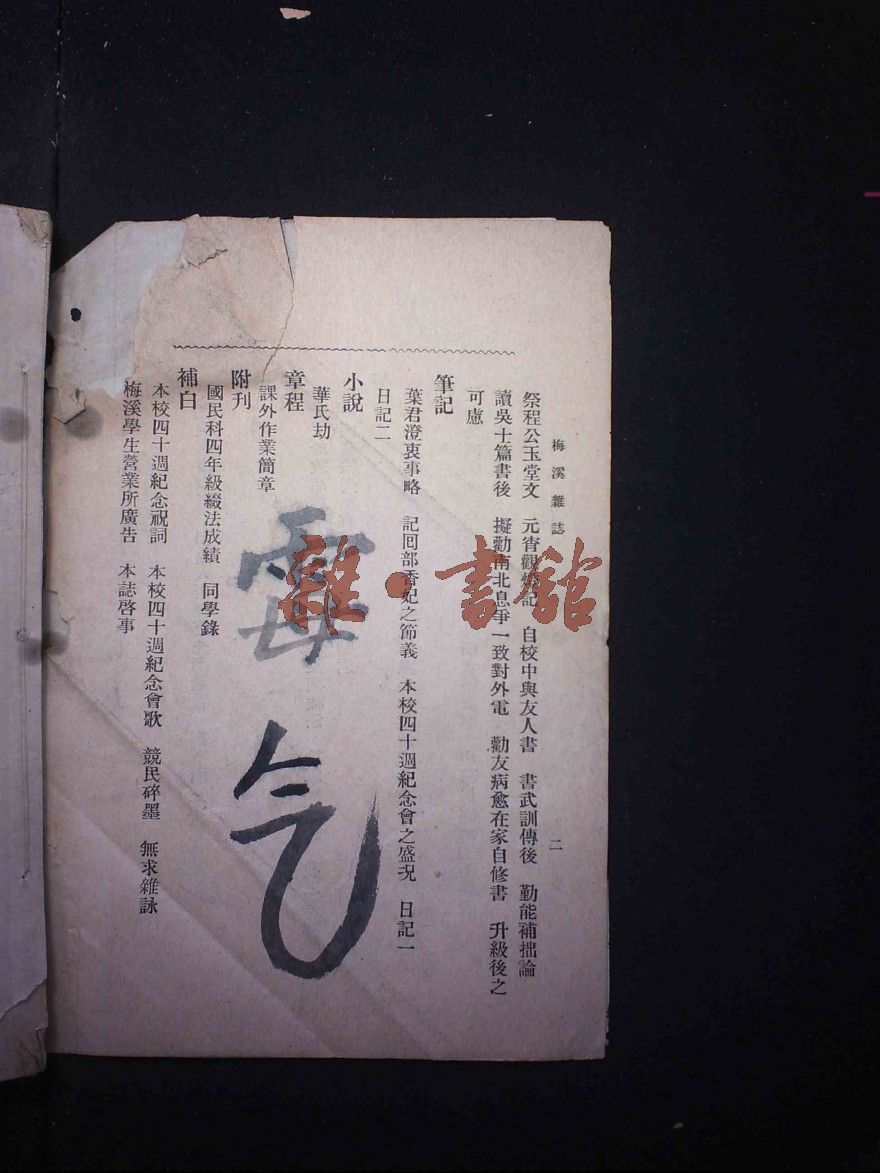 梅溪雜誌 二
祭程公玉堂文 元宵觀燈記 自校中與友人書 書武訓傳後 勤能補拙論
讀吳士篇書後 擬勸南北息爭一致對外電 勸友病愈在家自修書 升級後之
可慮
筆記
葉君澄衷事略 記回部香妃之節義 本校四十週紀念會之盛況 日記一
日記二
小說
華氏劫
章程
課外作業簡章
附刊
國民科四年級綴法成績 同學錄
補白
本校四十週紀念祝詞 本校四十週紀念會歌 競民碎墨 無求雜詠
梅溪學生營業所廣告 本誌啓事
雜·書館